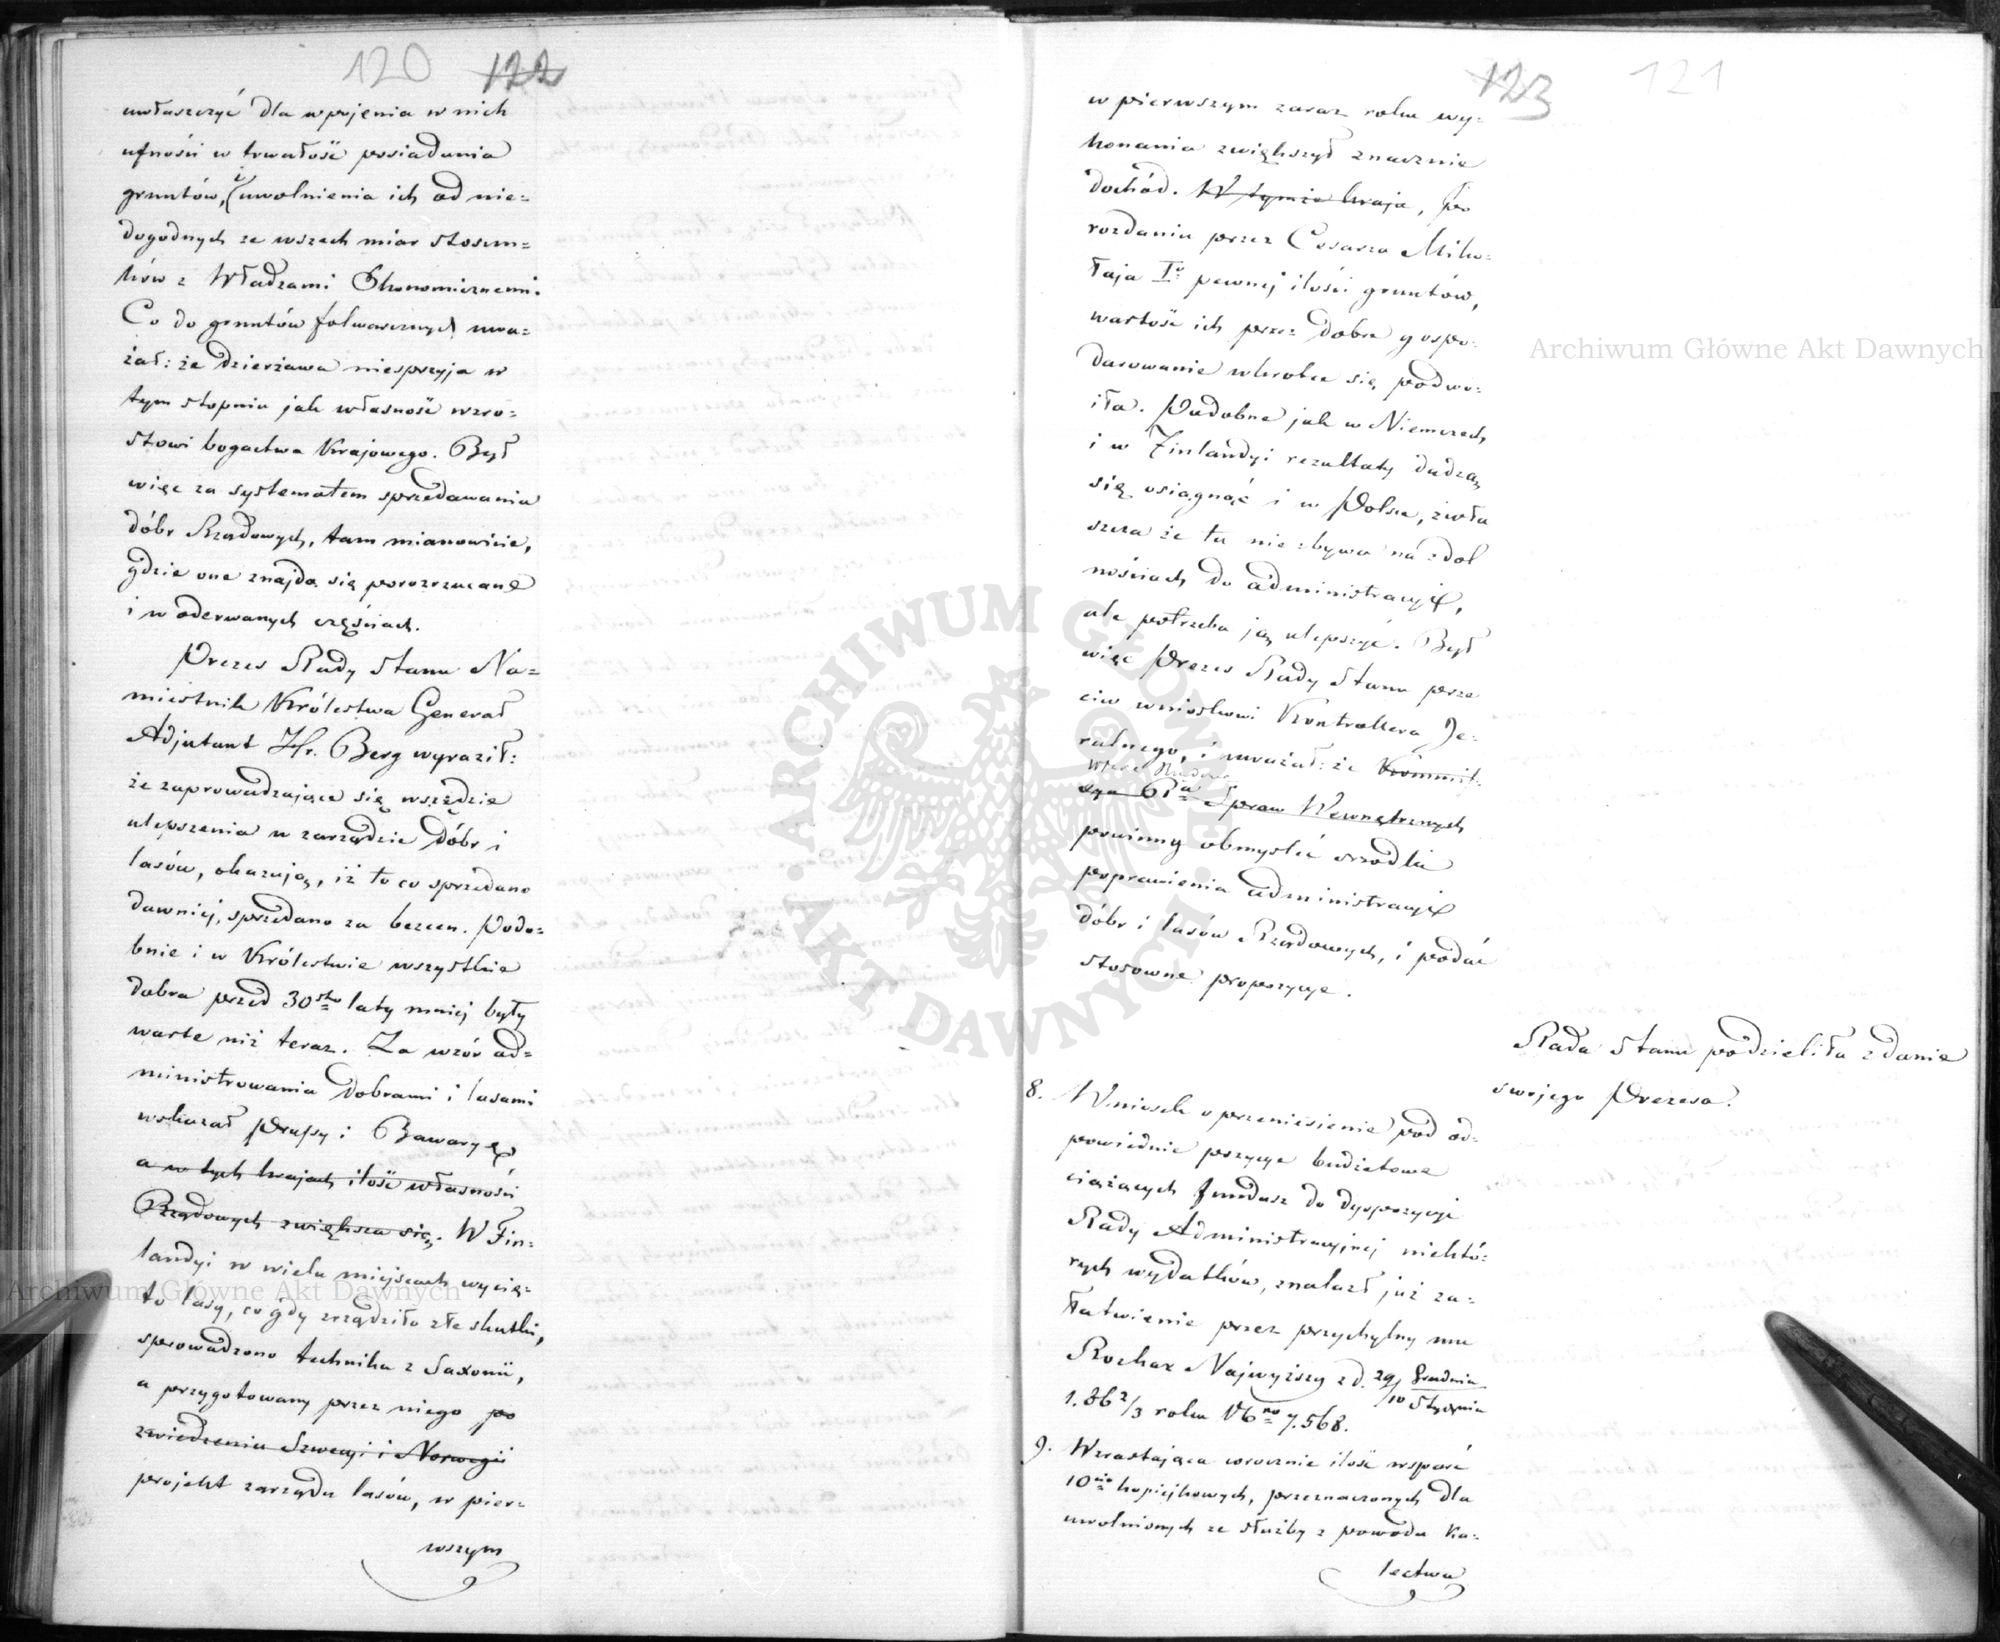 120 122
uwłaszczyć dla wpojenia w nich
ufności w trwałość posiadania
gruntów, i uwolnienia ich od nie=
dogodnych ze wszech miar stosun=
ków z Władzami Ekonomicznemi.
Co do gruntów folwarcznych uwa=
żał: że dzierżawa niesprzyja w
tym stopniu jak własność wzro=
stowi bogactwa Krajowego. Był
więc za systematem sprzedawania
dóbr Rządowych, tam mianowicie,
gdzie one znajdą się porozrzucane
i w oderwanych częściach.
Prezes Rady Stanu Na=
miestnik Królestwa Generał
Adjutant Hr. Berg wyraził:
że zaprowadzające się wszędzie
ulepszenia w zarządzie dóbr i
lasów, okazują, iż to co sprzedano
dawniej, sprzedano za bezcen. Podo=
bnie i w Królestwie wszystkie
dobra przed 30stu laty mniej były
warte niż teraz. Za wzór ad=
ministrowania dobrami i lasami
wskazał Prussy i Bawaryę,
a w tych krajach ilość własności
Rządowych zwiększa się. W Fin=
landyi w wielu miejscach wycię=
to lasy, co gdy zrządziło złe skutki,
sprowadzono technika z Saxonii,
a przygotowany przez niego po
zwiedzeniu Szwecyi i Norwegii
projekt zarządu lasów, w pier=
wszym
123 121
w pierwszym zaraz roku wy=
konania zwiększył znacznie
dochód. W tymże kraju, po
rozdaniu przez Cesarza Miko=
łaja Igo pewnej ilości gruntów,
wartość ich przez dobre gospo=
darowanie wkrótce się podwo=
iła. Podobne jak w Niemczech
i w Finlandyi rezultaty dadzą
się osiągnąć i w Polsce, zwła
szcza że tu nie zbywa na zdol
nościach do administracyi,
ale potrzeba ją ulepszyć. Był
więc Prezes Rady Stanu prze
ciw wnioskowi Kontrollera Je=
ralnego, i uważał: że Kommis=
Władze Rządowe
sya Rza Spraw Wewnętrznych
powinny obmyśleć srzodki
poprawienia administracyi
dóbr i lasów Rządowych, i podać
stosowne propozycye.
Rada Stanu podzieliła zdanie
swojego Prezesa.
8. Wniosek o przeniesienie pod od=
powiednie pozycye budżetowe
ciążących fundusz do dyspozycyi
Rady Administracyjnej niektó=
rych wydatków, znalazł już za=
łatwienie przez przychylny mu
Rozkaz Najwyższy z d. 29 Grudnia/10 Stycznia
1.862/3 roku No 7.568.
9. Wzrastająca corocznie ilość wsparć
10cio kopiejkowych, przeznaczonych dla
uwolnionych ze służby z powodu ka=
lectwa
Archiwum Główne Akt Dawnych
Archiwum Główne Akt Dawnych
ARCHIWUM GŁÓWNE
AKT DAWNYCH